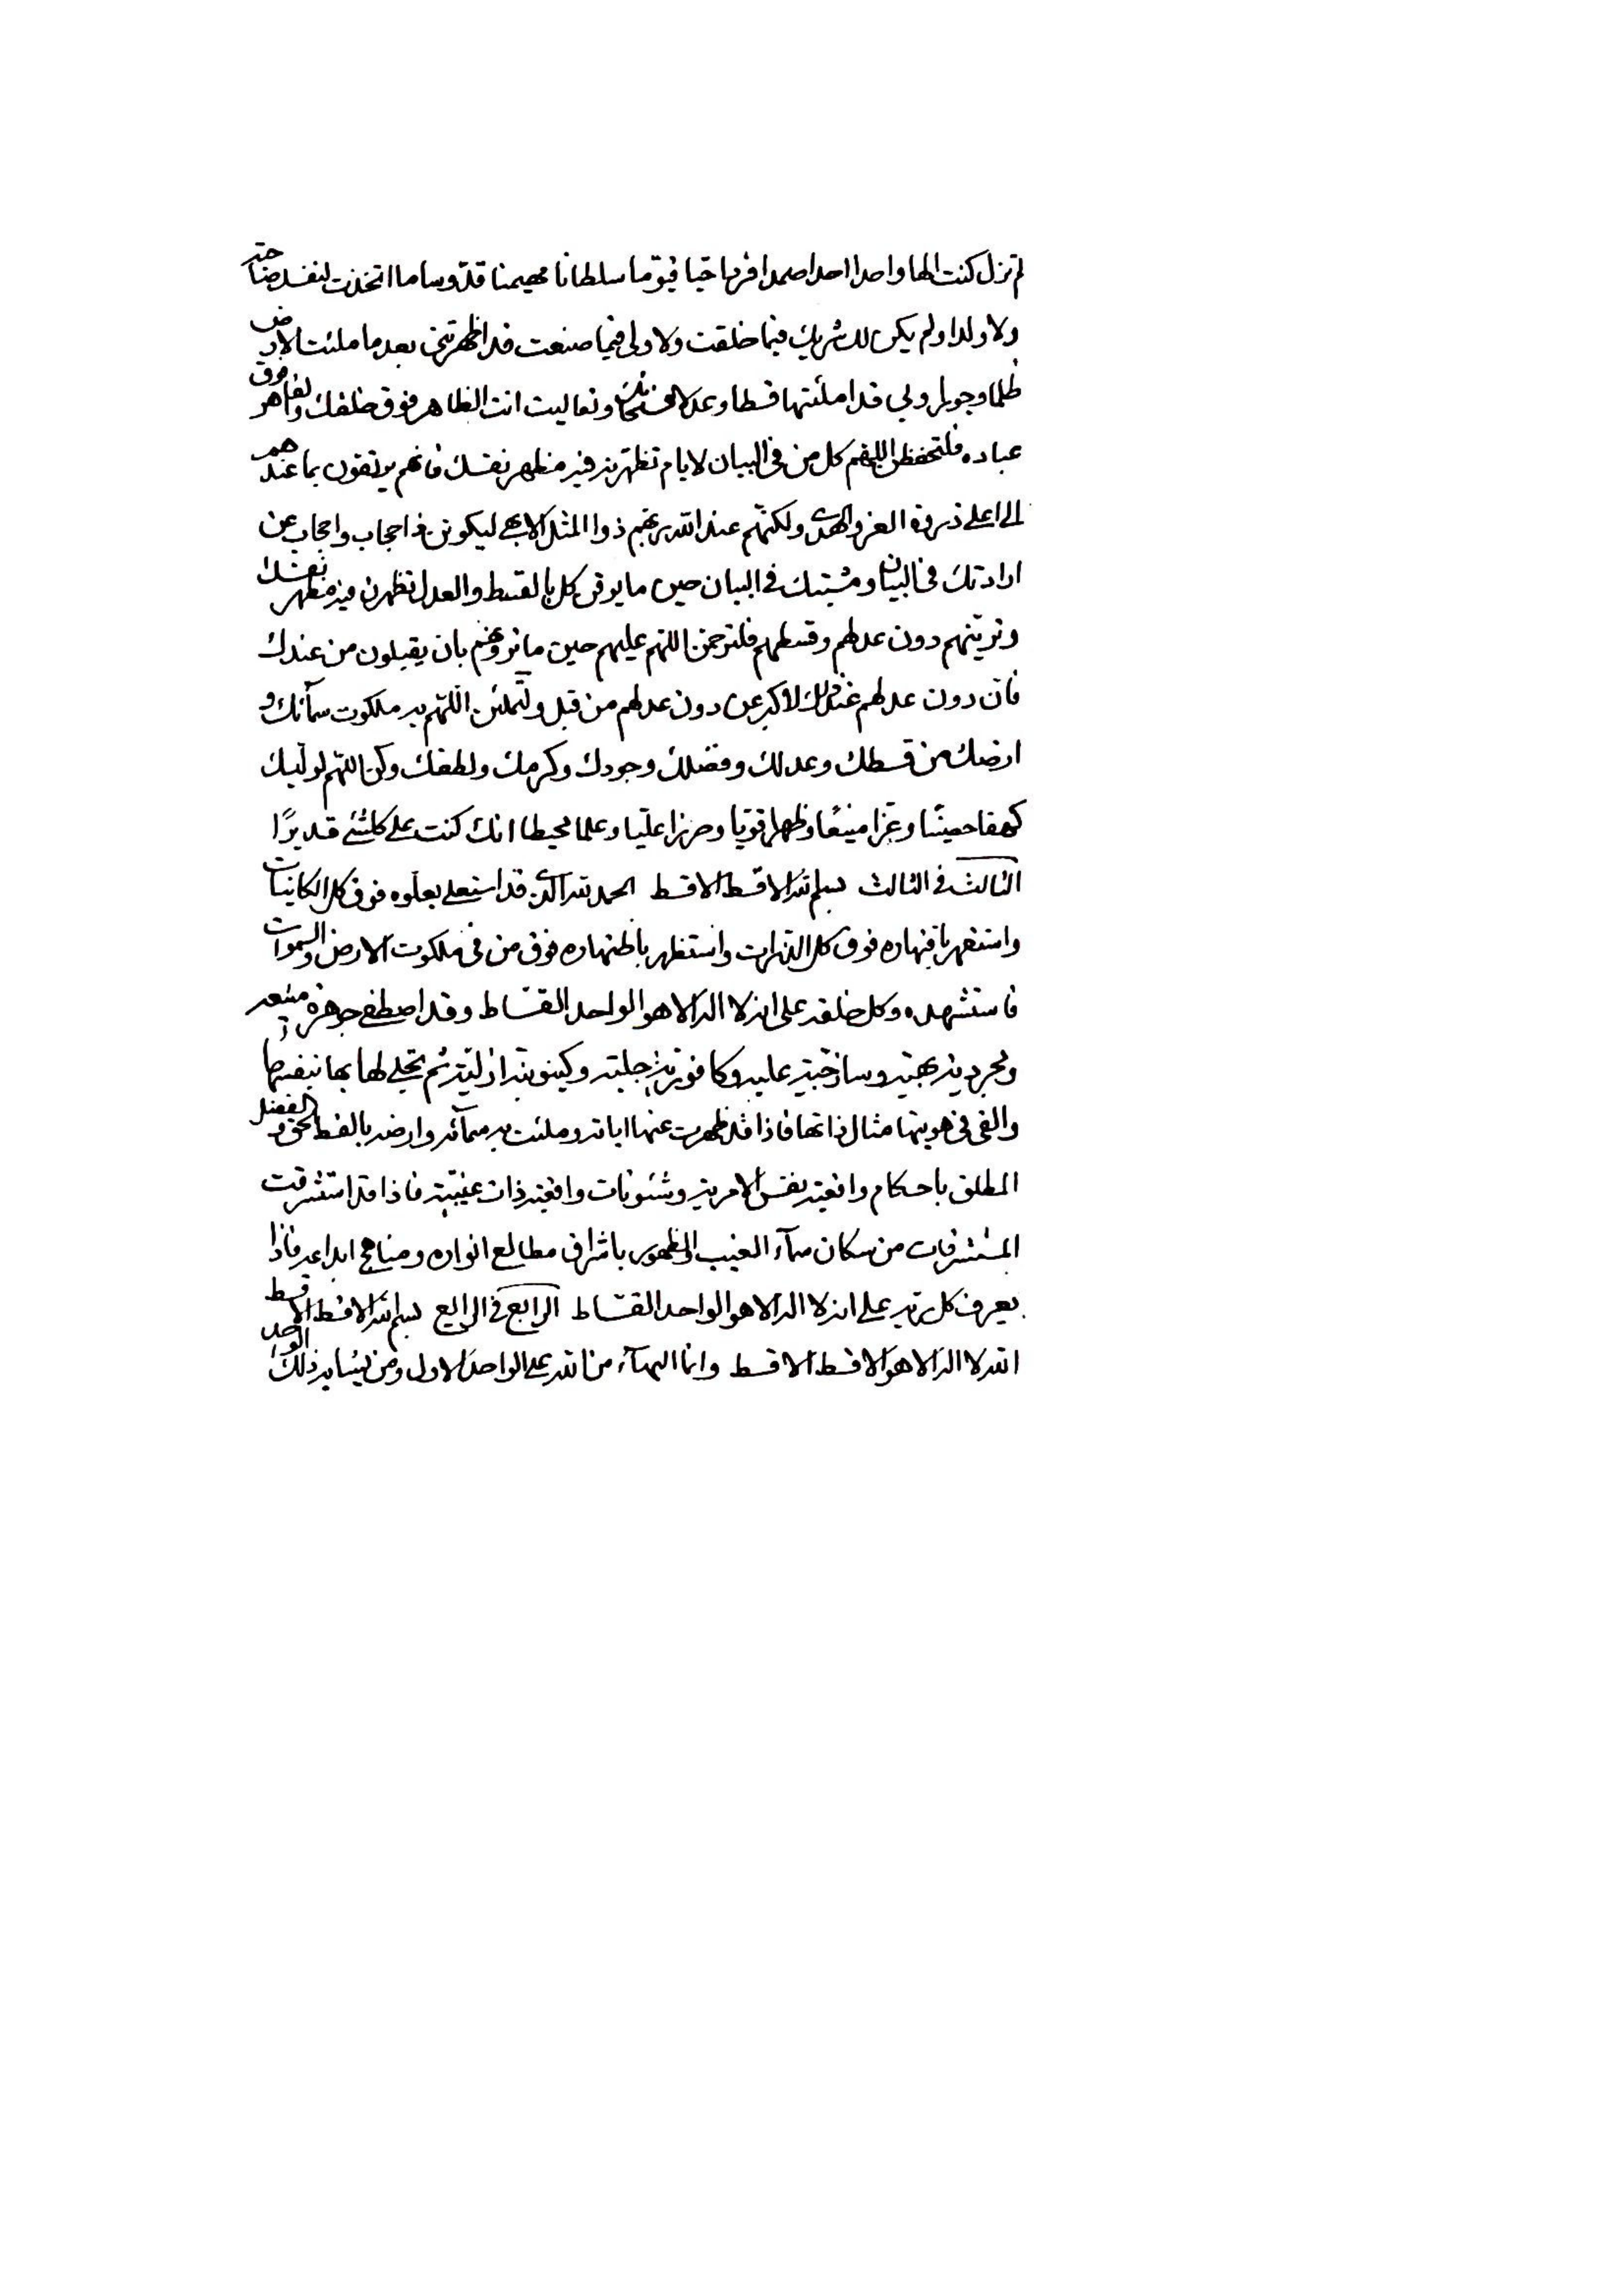 لم تزل كنت الها واحدا احدا صمدا فردا حيا قيوما سلطانا مهيمنا قدوسا ما اتخذت لنفسك صاحبة
ولا ولدا ولم يكن لك شريك فيما خلقت ولا ولي فيما صنعت قد اظهرتني بعد ما ملئت الارض
ظلما وجورا قد املئتها قسطا وعدلا فسبحانك وتعاليت انت الظاهر فوق خلقك والقاهر فوق
عباده فلتحفظن اللهم كل من في البيان لايام تظهرن فيه مظهر نفسك فانهم يوتقون بما عندهم
الى اعلى ذروة العز والهدى ولكنهم عند الله ربهم ذوا المثل الابهى ليكونن في احجاب واحجاب عن
ارادتك في البيان ومشيتك في البيان حين ما يوقن كل بالقسط والعدل تظهرن فيه مظهر نفسك
وترينهم دون عدلهم وقسطهم فلترحمن اللهم عليهم حين ما بان يقبلون من عندك
فان دون عدلهم عند ذلك لاكبر عن دون عدلهم من قبل ولتملئن اللهم به ملكوت سمائك و
ارضك من قسطك وعدلك وفضلك وجودك وكرمك ولطفك وكن اللهم لوليك
كهفا حصينا وعزا منيعا وظهرا قويا وحرزا عليا وعلما محيطا انك كنت على كلشئ قديرًا
الثالث في الثالث بسم الله الاقسط الاقسط الحمد لله الذي قد استعلى بعلوه فوق كل الكائنات
واستقهر باقتهاره فوق كل الذرات واستظهر باظتهاره فوق من في ملكوت الارض والسموات
فاستشهده وكل خلقه على انه لا اله الا هو الواحد القساط وقد اصطفى جوهرة
ومجردية بهية وساذجية علية وكافورية جلية وكينونية ازلية ثم تجلى لها بها بنفسها
والقى في هويتها مثال ذاتها فاذا قد ظهرت عنها اياته وملئت به سمائه وارضه بالقسط الحق والفضل
المطلق باحكام واقعية نفس الامرية وشئونات واقعية ذات غيبية فاذا قد استشرقت
المستشرقات من سكان سماء الغيب والظهور باشراق مطالع انواره ومناهج ابداعه فاذا
يعرف كل ربه على انه لا اله الا هو الواحد القساط الرابع في الرابع بسم الله الاقسط الاقسط
الله لا اله الا هو الاقسط الاقسط وانما البهاء من الله على الواحد الاول ومن يشابه ذلك الواحد